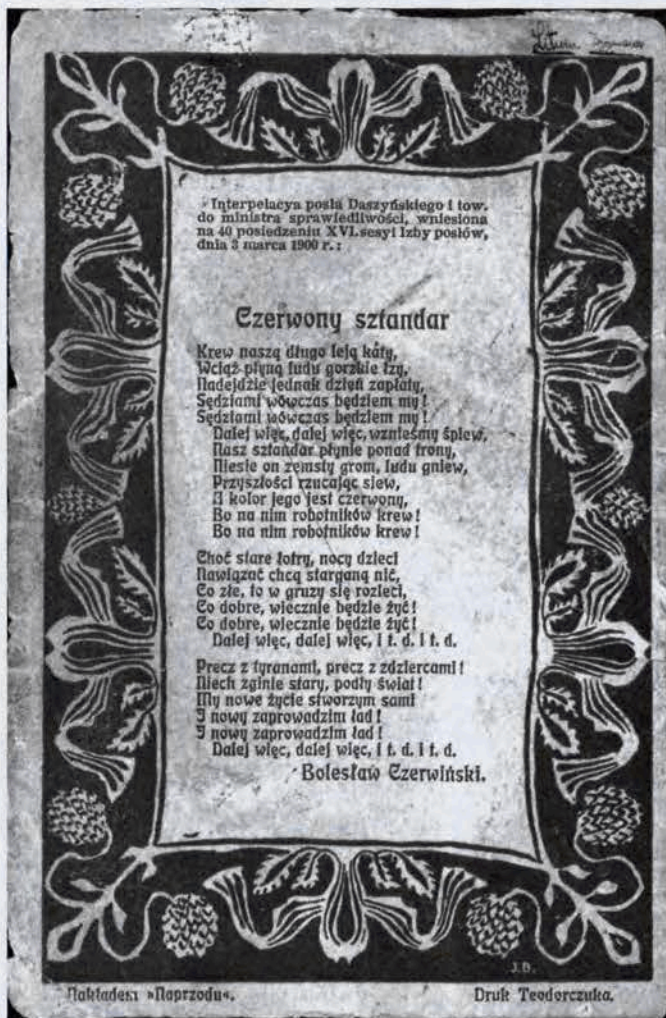 Interpelacya posła Daszyńskiego i tow.
do ministra sprawiedliwości, wniesiona
na 40 posiedzeniu XVI. sesyi Izby posłów,
dnia 3 marca 1900 r.:
Czerwony sztandar
Krew naszą długo leją káty,
Wciąż płyną ludu gorzkie łzy,
Nadejdzie jednak dzień zapłaty,
Sędziami wówczas będziem my!
Sędziami wówczas będziem my!
Dalej więc, dalej więc, wznieśmy śpiew,
Nasz sztandar płynie ponad trony,
Niesie on zemsty grom, ludu gniew,
Przyszłości rzucając siew,
A kolor jego jest czerwony,
Bo na nim robotników krew!
Bo na nim robotników krew!
Choć stare łotry, nocy dzieci
Nawiązać chcą starganą nić,
Co złe, to w gruzy się rozleci,
Co dobre, wiecznie będzie żyć!
Co dobre, wiecznie będzie żyć!
Dalej więc, dalej więc, i t. d. i t. d.
Precz z tyranami, precz z zdziercami!
Niech zginie stary, podły świat!
My nowe życie stworzym sami
I nowy zaprowadzim ład!
I nowy zaprowadzim ład!
Dalej więc, dalej więc, i t. d. i t. d.
Bolesław Czerwiński.
J.B.
Nakładem »Naprzodu«.
Druk Teodorczuka.